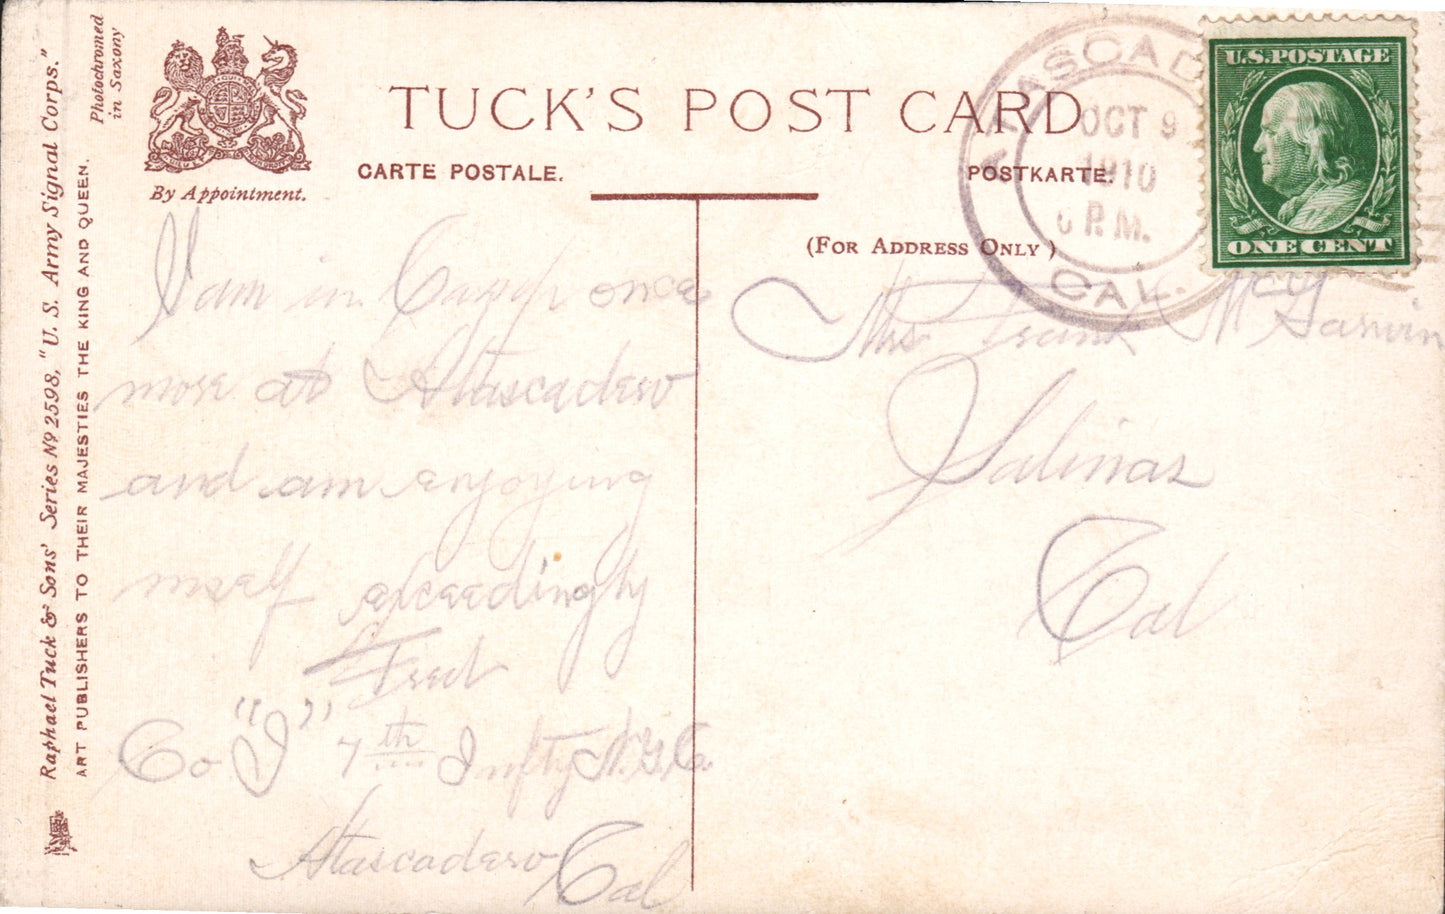 Photochromed
in Saxony
Raphael Tuck & Sons' Series Nº 2598, "U. S. Army Signal Corps."
ART PUBLISHERS TO THEIR MAJESTIES THE KING AND QUEEN.
By Appointment.
TUCK'S POST CARD
CARTE POSTALE.
POSTKARTE.
(FOR ADDRESS ONLY)
ATASCAD
OCT 9
1910
6 P.M.
CAL.
U.S. POSTAGE
ONE CENT
I am in Camp once
more at Atascadero
and am enjoying
mself exceedingly
Fred
Co "I" 7th Infty N.G.C.
Atascadero Cal
Mrs Frank M Garvin
Salinas
Cal